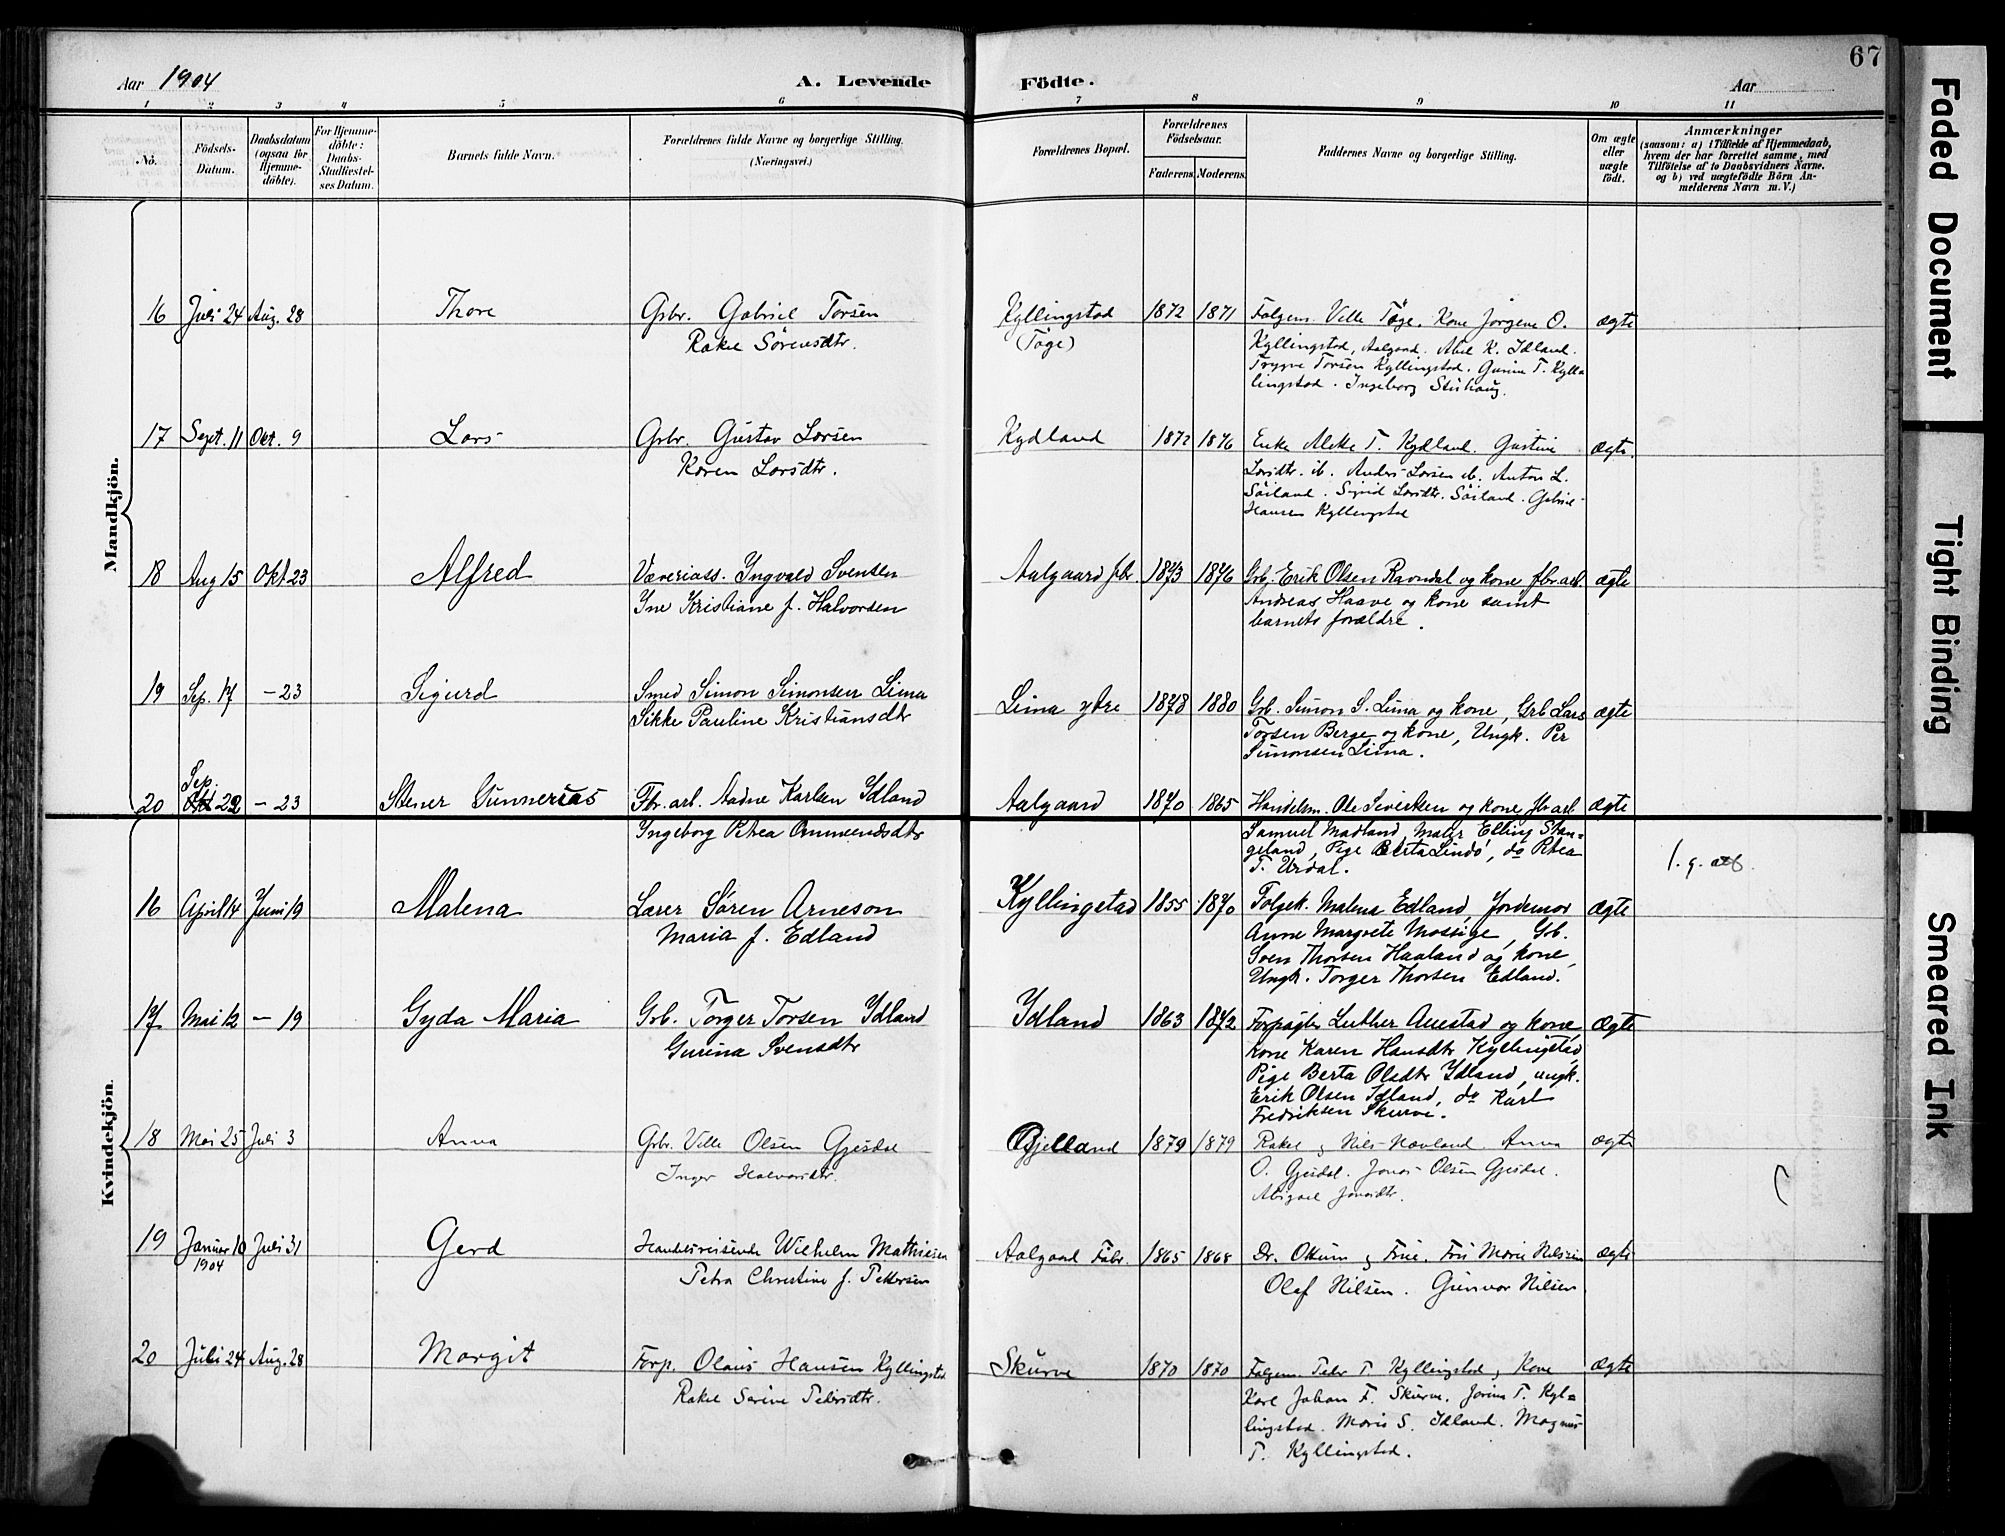 67
Aar 1904 A. Levende Födte. Aar
1 2 3 4 5 6 7 8 9 10 11
No. Födsels-Datum. Daabsdatum (ogsaa for Hjemme-döbte). For Hjemme-döbte: Daabs-Stadfæstel-ses Datum. Barnets fulde Navn. Forældrenes fulde Navne og borgerlige Stilling. (Næringsvei.) Forældrenes Bopæl. Forældrenes Födselsaar. Faderens Moderens. Faddernes Navne og borgerlige Stilling. Om ægte eller uægte födt. Anmærkninger (saasom: a) i Tilfælde af Hjemmedaab, hvem der har forrettet samme, med Tilföielse af to Daabsvidners Navne. og b) ved uægtefödte Börn An-melderens Navn m. V.)
Mandkjön.
16 Juli 24 Aug. 28 Thore Grbr. Gabriel Torsen Kyllingstad 1872 1871 Folgem. Ville Töge. Kone Jörgene O. ægte
Rakel Sörensdtr. (Töge) Kyllingstad, Aalgaard. Abel K. Idland.
Trygve Torsen Kyllingstad. Gurine T. Kyl-
lingstad. Ingeborg
17 Sept. 11 Okt. 9 Lars Grbr. Gustav Larsen Kydland 1872 1876 Enke T. Kydland. Gustine ægte.
Karen Larsdtr. Larsdtr. ib. Anders Larsen ib. Anton L.
Söiland. Sigrid Larsdtr. Söiland. Gabriel
Hansen Kyllingstad
18 Aug 15 Okt 23 Alfred Væveriass. Yngvald Svensen Aalgaard fbr. 1873 1876 Grb. Erik Olsen Ravndal og kone fbr. arb. ægte
Yne Kristiane f. Halvorsen Andreas Haave og kone samt
barnets forældre.
19 Sep. 17 - 23 Sigurd Smed Simon Simonsen Lima Lima ytre 1878 1880 Grb. Simon S. Lima og kone, Grb Lars ægte
Sikke Pauline Kristiansdtr Torsen Berge og kone, Ungk. Per
Simonsen Lima.
20 Sep. 22 - 23 Stener Gunnerius Fbr. arb. Aadne Karlsen Ydland Aalgaard 1870 1865 Handelsm. Ole Sivertsen og kone, fbr arb. ægte
Ingeborg Petrea Ommundsdtr Samuel Madland, Maler Elling Stan-
geland, Pige Berta Lindö, do Petrea
T. Urdal.
Kvindekjön.
16 April 14 Juni 19 Malena Lærer Sören Arneson Kyllingstad 1855 1870 Folgek. Malena Edland, Jordemor ægte
Maria f. Edland Anne Margrete Mossige, Grb.
Sven Thorsen Haaland og kone,
Ungk. Torger Thorsen Edland.
17 Mai 12 - 19 Gyda Maria Grb. Torger Torsen Ydland Ydland 1863 1872 Forpagter Luther Auestad og kone, ægte
Gurina Svensdtr kone Karen Hansdtr Kyllingstad,
Pige Berta Olsdtr Ydland, ungk.
Erik Olsen Idland, do Karl
Fredriksen Skurve.
18 Mai 25 Juli 3 Anna Grbr. Ville Olsen Gjesdal Gjelland 1879 1879 Rakel & Nils Havland Anna ægte
Inger Halvorsdtr. O. Gjesdal. Jonas Olsen Gjesdal.
Abigael Jonasdtr.
19 Januar 10 Juli 31 Gerd Handelsreisende Wilhelm Mathiesen Aalgaard Fabr. 1865 1868 Dr. & Frue. Fru Marie Nilsen ægte
1904 Petra Christine f. Pettersen Olaf Nilsen. Gunvor Nilsen
20 Juli 24 Aug. 28 Margit Forp. Olaus Hansen Kyllingstad Skurve 1870 1870 Folgem. Peder T. Kyllingstad & Kone ægte
Rakel Serine Pedersdtr. Karl Johan F. Skurve. Jorine T. Kyl-
lingstad. Marie S. Idland. Magnus
T. Kyllingstad.
Faded Document
Tight Binding
Smeared Ink